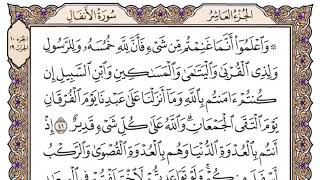 الجزء العاشر
سورة الأنفال
وَٱعۡلَمُوٓاْ أَنَّمَا غَنِمۡتُم مِّن شَيۡءٖ فَأَنَّ لِلَّهِ خُمُسَهُۥ وَلِلرَّسُولِ
وَلِذِي ٱلۡقُرۡبَىٰ وَٱلۡيَتَٰمَىٰ وَٱلۡمَسَٰكِينِ وَٱبۡنِ ٱلسَّبِيلِ إِن
كُنتُمۡ ءَامَنتُم بِٱللَّهِ وَمَآ أَنزَلۡنَا عَلَىٰ عَبۡدِنَا يَوۡمَ ٱلۡفُرۡقَانِ
يَوۡمَ ٱلۡتَقَى ٱلۡجَمۡعَانِۗ وَٱللَّهُ عَلَىٰ كُلِّ شَيۡءٖ قَدِيرٌ ٤١ إِذۡ
أَنتُم بِٱلۡعُدۡوَةِ ٱلدُّنۡيَا وَهُم بِٱلۡعُدۡوَةِ ٱلۡقُصۡوَىٰ وَٱلرَّكۡبُ